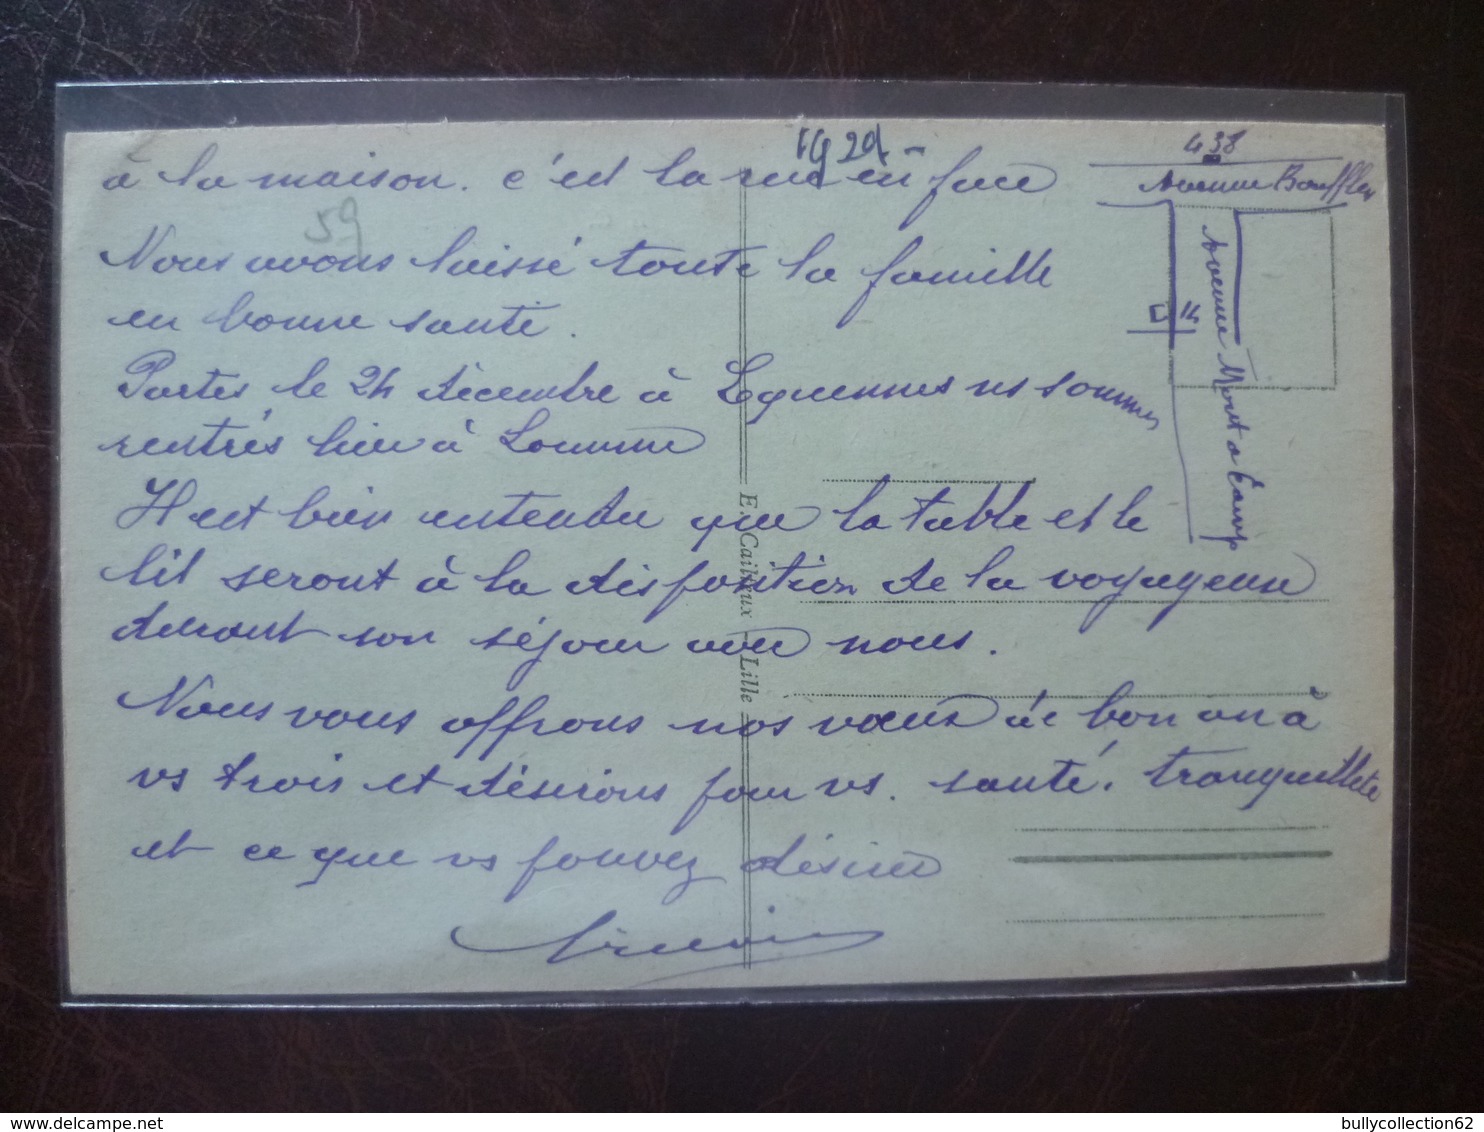 1929
à la maison. c'est la rue en face
59
Nous avons laissé toute la famille
en bonne santé.
Partis le 24 décembre à Lequennes ns sommes
rentrés hier à Lomme
Il est bien entendu que la table et le
lit seront à la disposition de la voyageuse
durant son séjour avec nous.
Nous vous offrons nos vœux de bon an à
vs trois et désirons pour vs. santé. tranquillité
et ce que vs pouvez désirer
438
Avenue Boufflers
Avenue Mont à Camp
14
E. Cailteux - Lille
bullycollection62